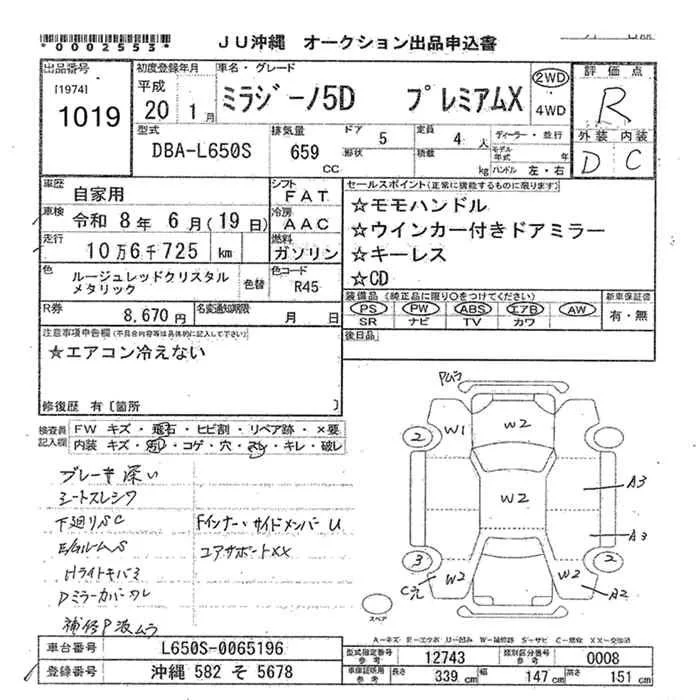 *0002553*
JU沖縄 オークション出品申込書
出品番号
[1974]
1019
初度登録年月
平成
20 1月
車名・グレード
ミラジーノ5D プレミアムX
2WD
4WD
評価点
R
外装 内装
D C
型式
DBA-L650S
排気量
659
CC
ドア 5
形状
定員 4 人
積載 kg
ディーラー・並行
モデル年式 年
ハンドル 左・右
車歴
自家用
シフト
FAT
車検
令和 8年 6月(19日)
冷房
AAC
走行
10万6千725 km
燃料
ガソリン
色
ルージュレッドクリスタル
メタリック
色替
色コード
R45
R券
8,670円
名変通知期限
月 日
セールスポイント(正常に機能するものに限ります)
☆モモハンドル
☆ウインカー付きドアミラー
☆キーレス
☆CD
装備品 (純正品に限り○をつけてください)
PS PW ABS エアB AW
SR ナビ TV カワ
新車保証書
有・無
後日品
注意事項申告欄(不具合内容等は具体的に記入して下さい)
☆エアコン冷えない
修復歴 有 [箇所 ]
検査員
記入欄
FW キズ・飛石・ヒビ割・リペア跡・×要
内装 キズ・汚れ・コゲ・穴・スレ・キレ・破レ
ブレーキ深い
シートスレシワ
下廻りSC
E/GルームS
Hライトキバミ
Dミラーカバーワレ
補修P波ムラ
Fインナー、サイドメンバーU
コアサポートXX
Pムラ
W1
W2
2
W2
A3
A3
3
2
W2
W2
A2
スペア
A−キズ E−エクボ U−凹み W−補修跡 S−サビ C−腐蝕 XX−交換済
車台番号
L650S-0065196
登録番号
沖縄 582 そ 5678
型式指定番号
参考
12743
類別区分番号
参考
0008
車検証用
参考
長さ
339 cm
幅
147 cm
高さ
151 cm